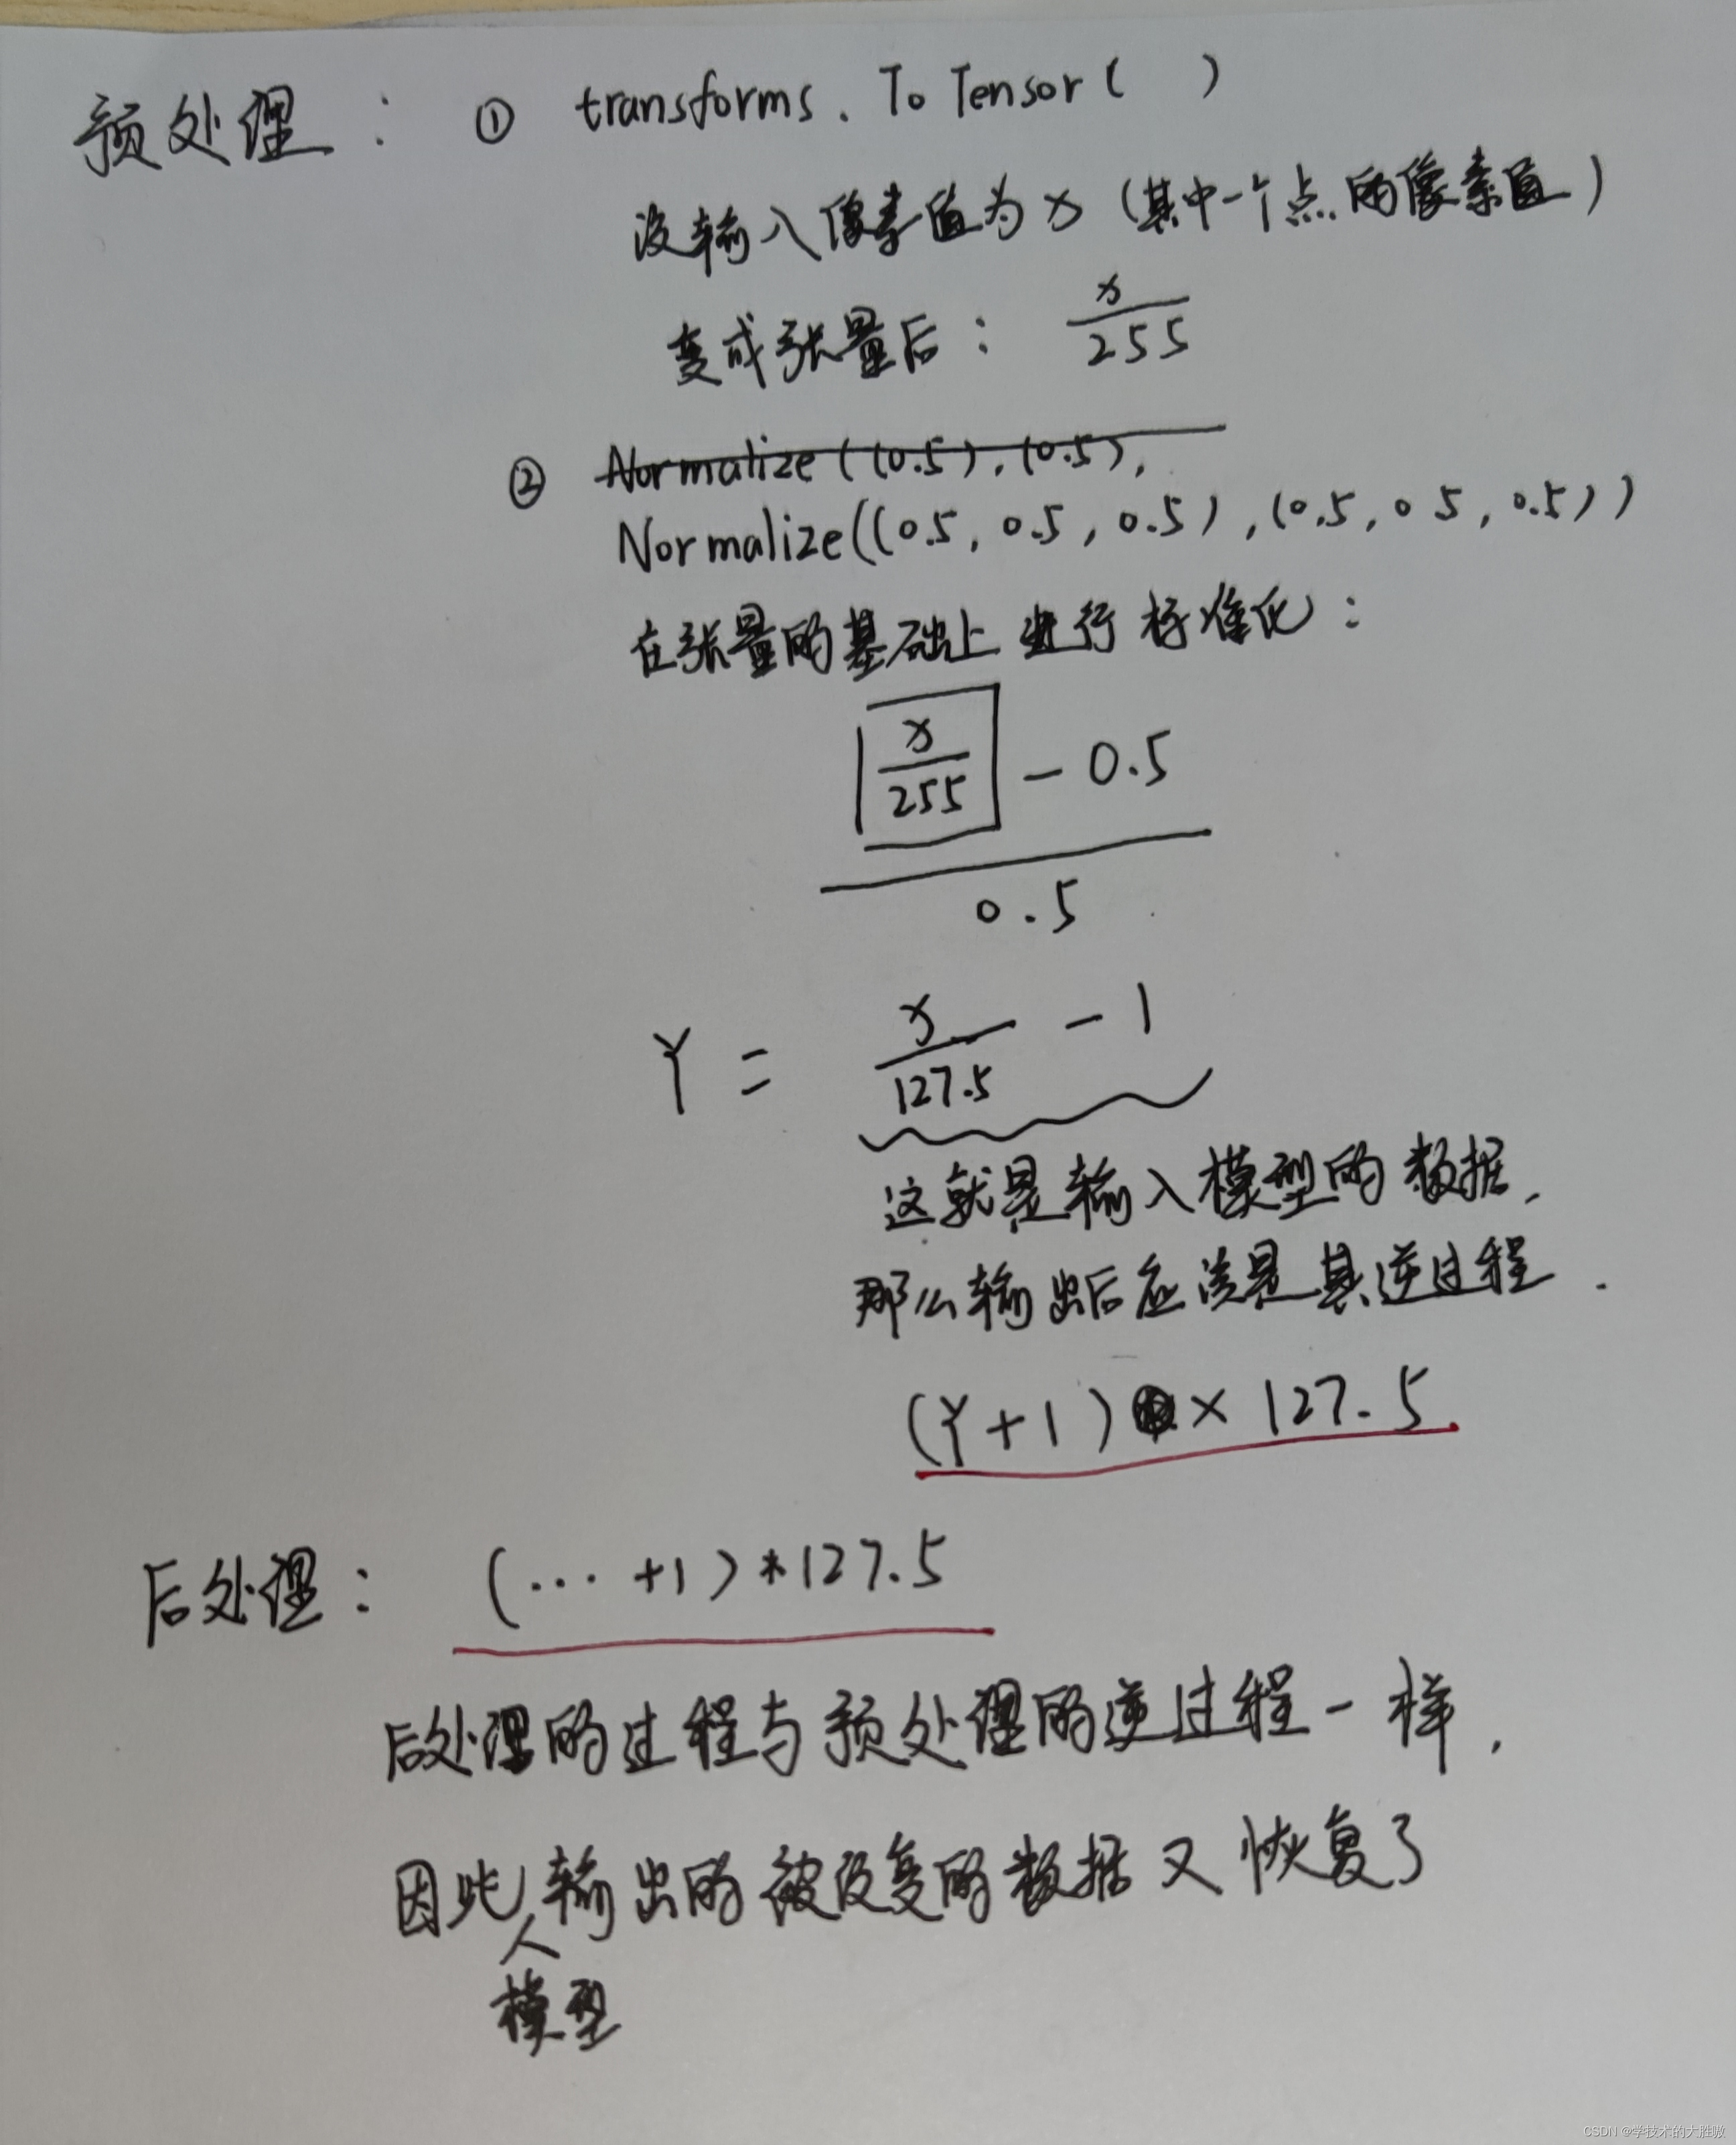 预处理： ① transforms. ToTensor( )
设输入像素值为x (其中一个点的像素值)
变成张量后： x/255
② Normalize((0.5), (0.5),
Normalize((0.5, 0.5, 0.5), (0.5, 0.5, 0.5))
在张量的基础上进行标准化：
x/255 - 0.5
0.5
Y = x/127.5 - 1
这就是输入模型的数据,
那么输出后应该是其逆过程.
(Y+1) × 127.5
后处理： (... +1)*127.5
后处理的过程与预处理的逆过程一样,
因此 输出的被改变的数据又恢复了
模型
CSDN @学技术的大胜嗷